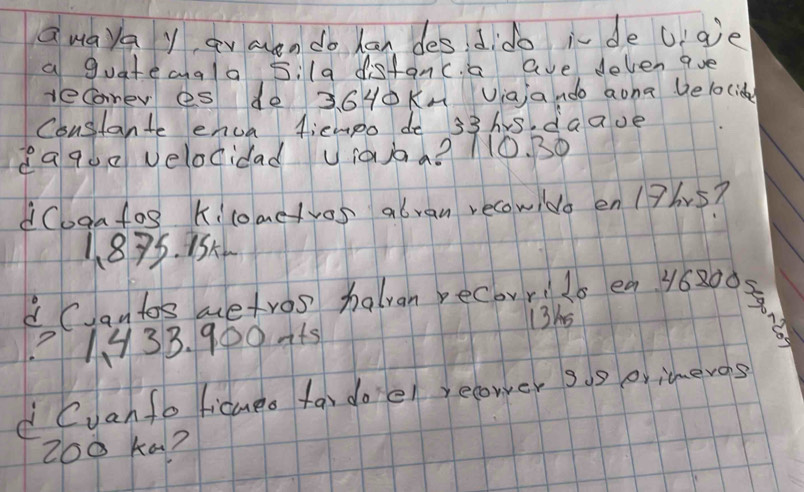 amaya y armando han desidido ir de viaje
a guatemala Si la distancia que deben que
recorrer es de 3,640 Km viajando aona belocida
Constante enua tiempo de 33 hrs. daque
¿a que velocidad viajan? 110.30
¿Cogatos Kilometros abran recorrido en 17hrs?
1,875.15Km
¿Cuantos metros habran recorrido en 46800 Segundos
13hs
? 1,433.900 mts
¿Cuanto tiempo tardo el recorrer sus primeros
200 km?